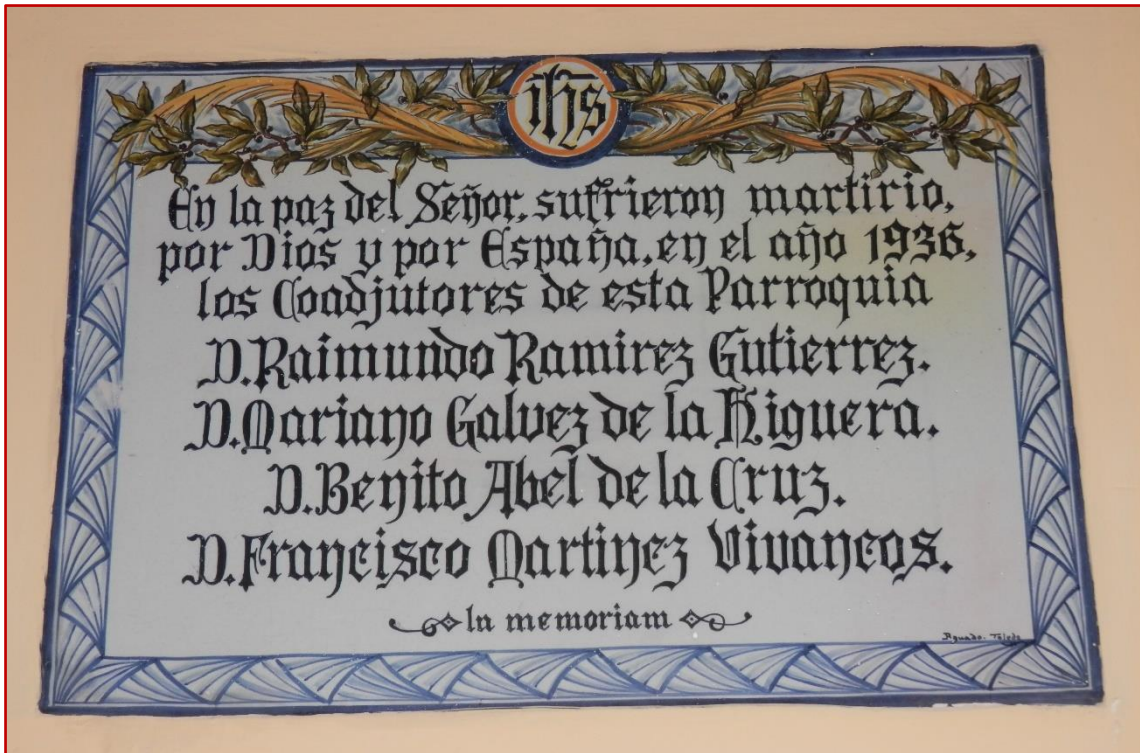 ihs
En la paz del Señor, sufrieron martirio,
por Dios y por España, en el año 1936,
los Coadjutores de esta Parroquia
D. Raimundo Ramirez Gutierrez.
D. Mariano Galvez de la Higuera.
D. Benito Abel de la Cruz.
D. Francisco Martinez Vivancos.
In memoriam
Aguado - Toledo